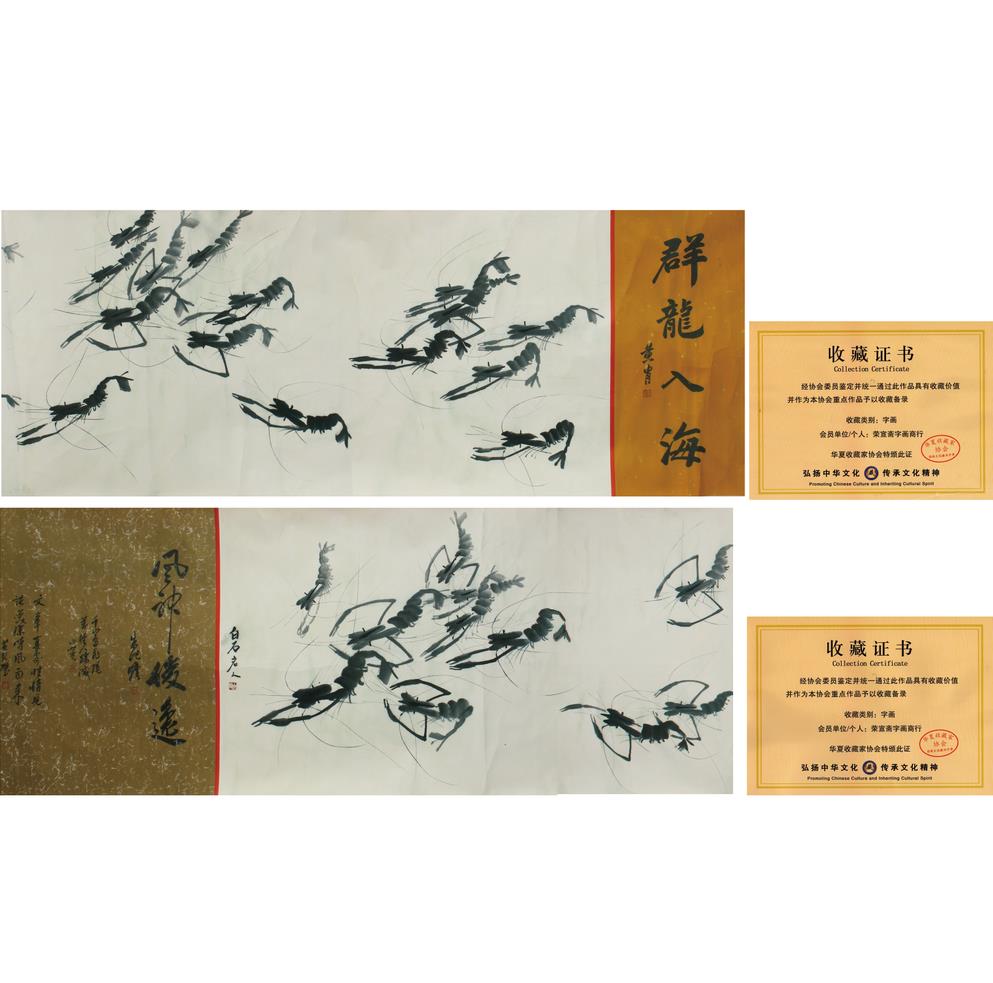 群龍入海
黄胄
收藏证书
Collection Certificate
经协会委员鉴定并统一通过此作品具有收藏价值
并作为本协会重点作品予以收藏备录
收藏类别：字画
会员单位/个人：荣宣斋字画商行
华夏收藏家协会特颁此证
华夏收藏家
协会
弘扬中华文化 藏 传承文化精神
Promoting Chinese Culture and Inheriting Cultural Spirit
白石老人
風神俊逸
收藏证书
Collection Certificate
经协会委员鉴定并统一通过此作品具有收藏价值
并作为本协会重点作品予以收藏备录
收藏类别：字画
会员单位/个人：荣宣斋字画商行
华夏收藏家协会特颁此证
华夏收藏家
协会
弘扬中华文化 藏 传承文化精神
Promoting Chinese Culture and Inheriting Cultural Spirit